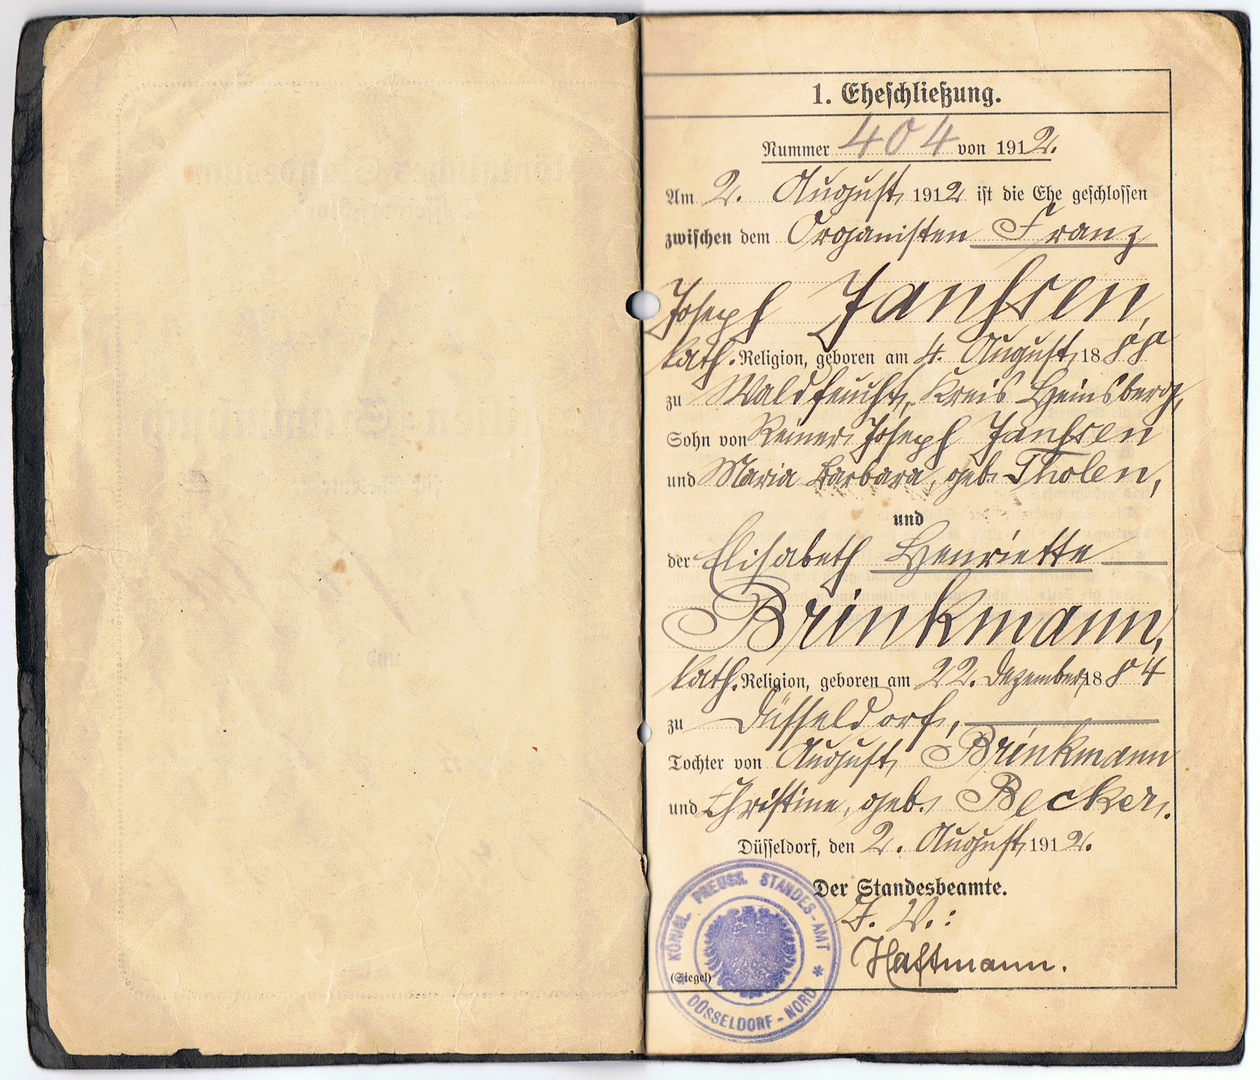 1. Eheschließung.
Nummer 404 von 1912.
Am 2. August 1912 ist die Ehe geschlossen
zwischen dem Organisten Franz
Joseph Janßen,
kath. Religion, geboren am 4. August 1888
zu Waldfeucht, Kreis Heinsberg,
Sohn von Reiner Joseph Janßen
und Maria Barbara, geb. Tholen,
und
der Elisabeth Henriette
Brinkmann,
kath. Religion, geboren am 22. Dezember 1884
zu Düsseldorf,
Tochter von August Brinkmann
und Christine, geb. Becker.
Düsseldorf, den 2. August 1912.
Der Standesbeamte.
I. V.:
(Siegel)
KÖNIGL. PREUSS. STANDES-AMT * DÜSSELDORF-NORD *